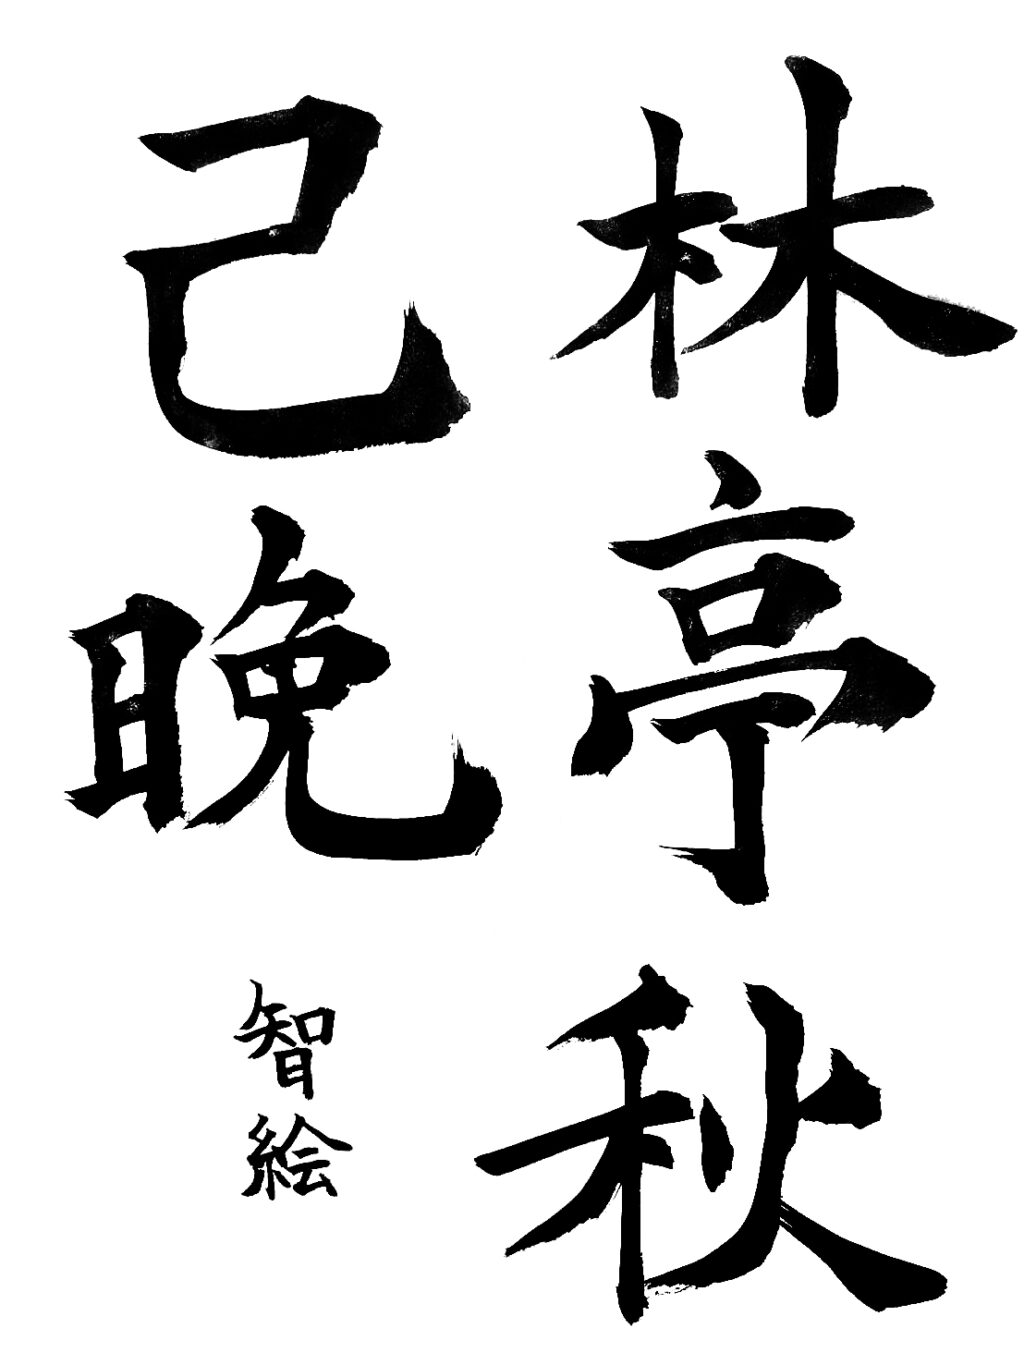 林亭秋
己晩
智絵